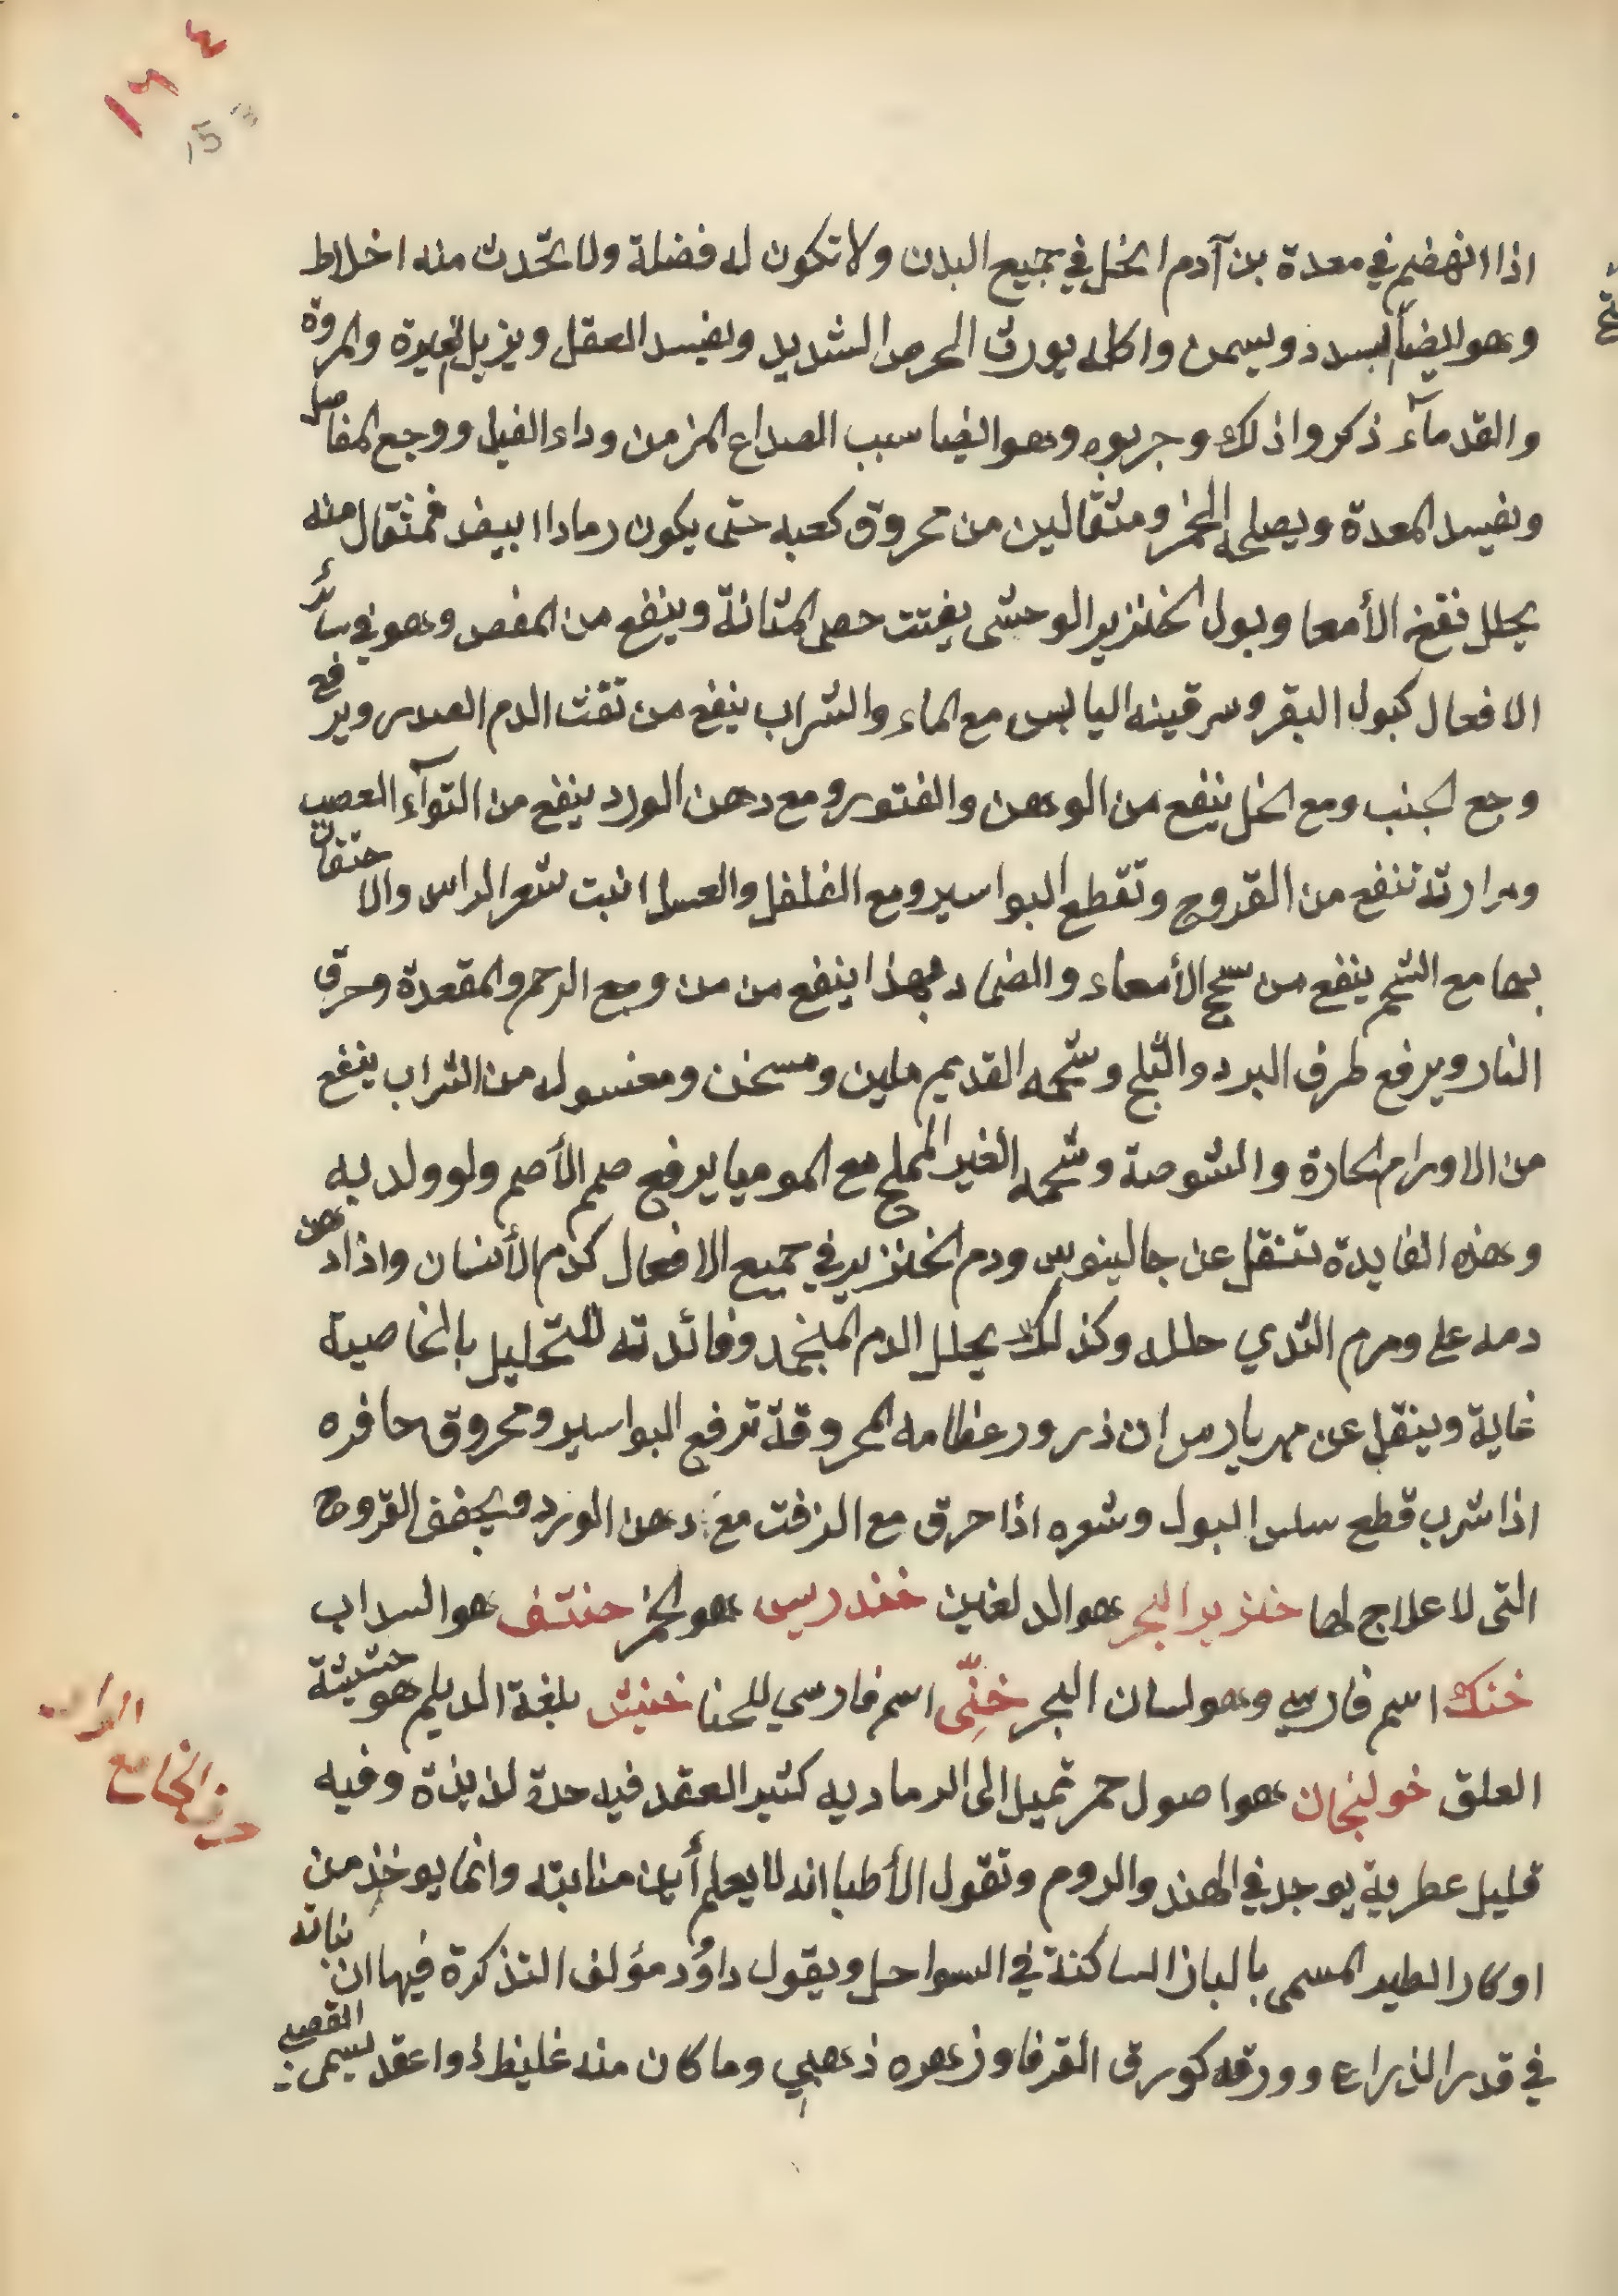 ١٦٤
153
اذا انهضم في معدة بن آدم انحل في جميع البدن ولا تكون له فضلة ولا تحدث منه اخلاط
وهو ايضاً يسدد ويسمن واكله يورث الحرص الشديد ويفسد العقل ويزيل الغيرة والمروة
والقدمآء ذكروا ذلك وجربوه وهو ايضا سبب الصداع المزمن وداء الفيل ووجع المفاصل
ويفسد المعدة ويصلحه الخمر ومثقالين من محروق كعبه حتى يكون رمادا ابيض فمثقال منه
يحلل نفخ الأمعا وبول الخنزير الوحشى يفتت حصى المثانة وينفع من المغص وهو في سائر
الافعال كبول البقر وسرقينه اليابس مع الماء والشراب ينفع من نفث الدم الصدر ويرفع
وجع الجنب ومع الخل ينفع من الوهن والفتور ومع دهن الورد ينفع من التوآء العصب
ومرارته تنفع من القروح وتقطع البواسير ومع الفلفل والعسل انبت شعر الراس والاحتقان
بها مع الشحم ينفع من سحج الأمعاء والضماد بهذا ينفع من من وجع الرحم والمقعدة وحرق
النار ويرفع طرف البرد والثلج وشحمه القديم ملين ومسخن ومغسوله من الشراب ينفع
من الاورام الحارة والشوصة وشحمه الغير المملح مع الموميا يرفع صمم الأصم ولو ولد به
وهذه الفايدة تنقل عن جالينوس ودم الخنزير في جميع الافعال كدم الأنسان واذا دهن
دمه على ورم الثدي حلله وكذلك يحلل الدم المنجمد وفائدته للتحليل بالخاصية
غاية وينقل عن مهريارس ان ذرور عظامه المحروقة ترفع البواسير ومحروق حافره
اذا شرب قطع سلس البول وشعره اذا حرق مع الزفت مع دهن الورد ويجفف القروح
التى لا علاج لها خنزير البحر هو الدلفين خندريس هو الخمر خنتف هو السداب
خنك اسم فارسي وهو لسان البحر خنّى اسم فارسي للحنا خنيش بلغة الديلم هو حشيشة
العلق خولنجان هو اصول حمر تميل الى الرمادية كثير العقد فيه حدة لذيذة وفيه
قليل عطرية يوجد في الهند والروم وتقول الأطبا انه لا يعلم أين منابته وانما يوخذ من
اوكار الطير المسمى بالباز الساكنة في السواحل ويقول داوُد مؤلف التذكرة فيها ان نباته
في قدر الذراع وورقه كورق القرفا وزهره ذهبي وما كان منه غليظ واعقد يسمى القصبي